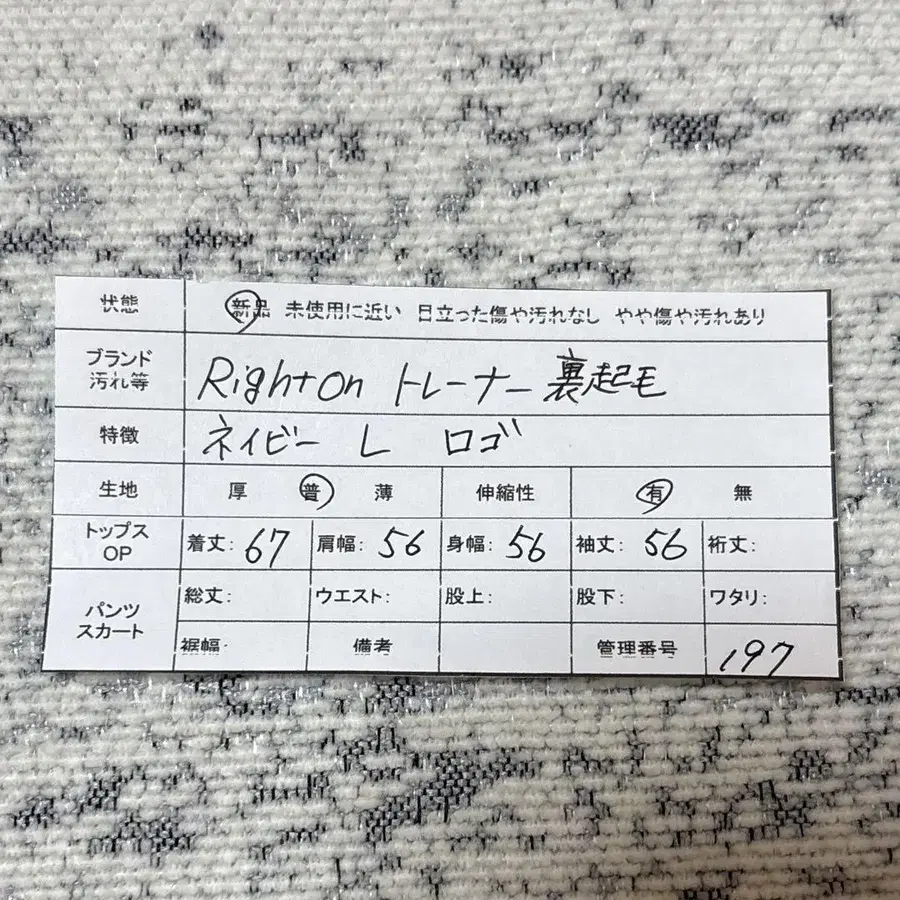 状態 新品 未使用に近い 目立った傷や汚れなし やや傷や汚れあり
ブランド
汚れ等 Right on トレーナー 裏起毛
特徴 ネイビー L ロゴ
生地 厚 普 薄 伸縮性 有 無
トップス
OP 着丈: 67 肩幅: 56 身幅: 56 袖丈: 56 裄丈:
パンツ
スカート 総丈: ウエスト: 股上: 股下: ワタリ:
裾幅: 備考 管理番号 197